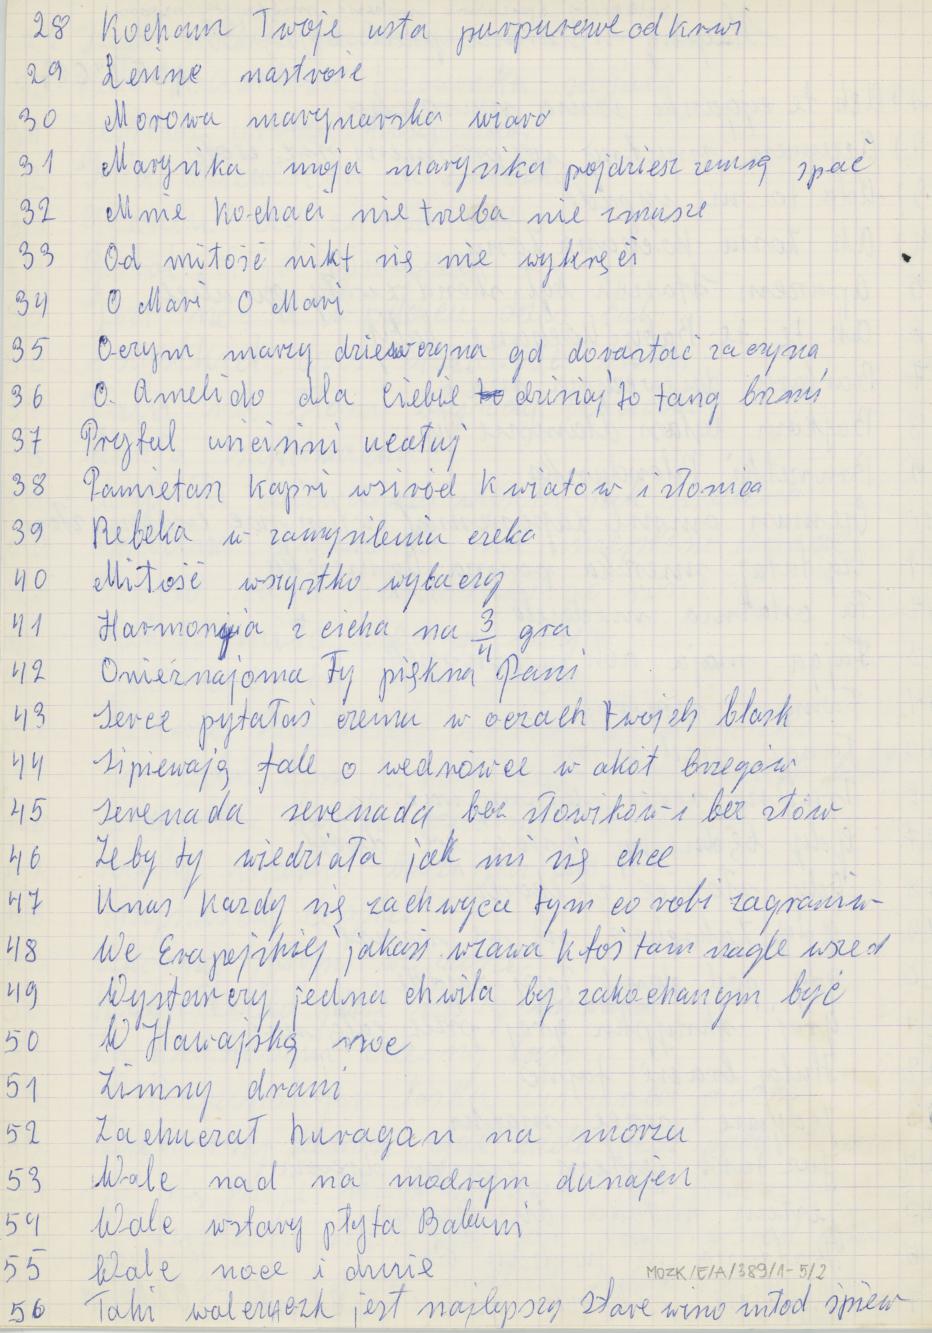 28 Kocham Twoje usta purpurowe od krwi
29 Leśne nastroie
30 Morowa marynarska wiara
31 Marynika moja marynika pójdziesz zemną spać
32 Mnie kochaći nie trzeba nie zmusze
33 Od miłość nikt się nie wykręći
34 O Mari O Mari
35 Oczym marzy dziewczyna gd dorastać zaczyna
36 O. Amelido dla Ciebie dzisiaj to tang brzmi
37 Przytul uściśni ucałuj
38 Pamietasz Kapri wśiród kwiatów i słońca
39 Rebeka w zamyśleniu czeka
40 Miłość wszystko wybaczy
41 Harmonija z cicha na 3/4 gra
42 Onieznajoma Ty piękna Pani
43 Serce pytałaś czemu w oczach twojch blask
44 Śipiewają fale o wedrówce w okół brzegów
45 Serenada serenada bez słowików i bez słów
46 Żeby ty wiedziała jak mi się chce
47 Unas każdy się zachwyca tym co robi zagranic
48 We Eropejskiej jakaś wrawa ktoś tam nagle wszed
49 Wystarczy jedna chwila by zakochanym być
50 W Hawajską noc
51 Zimny drani
52 Zachuczał huragan na morzu
53 Walc nad na modrym dunajen
54 Walc wstary płyta Babuni
55 Walc noce i dnie
MOZK/E/A/389/1-5/2
56 Taki walczyczk jest najlepszy stare wino miód śpiew